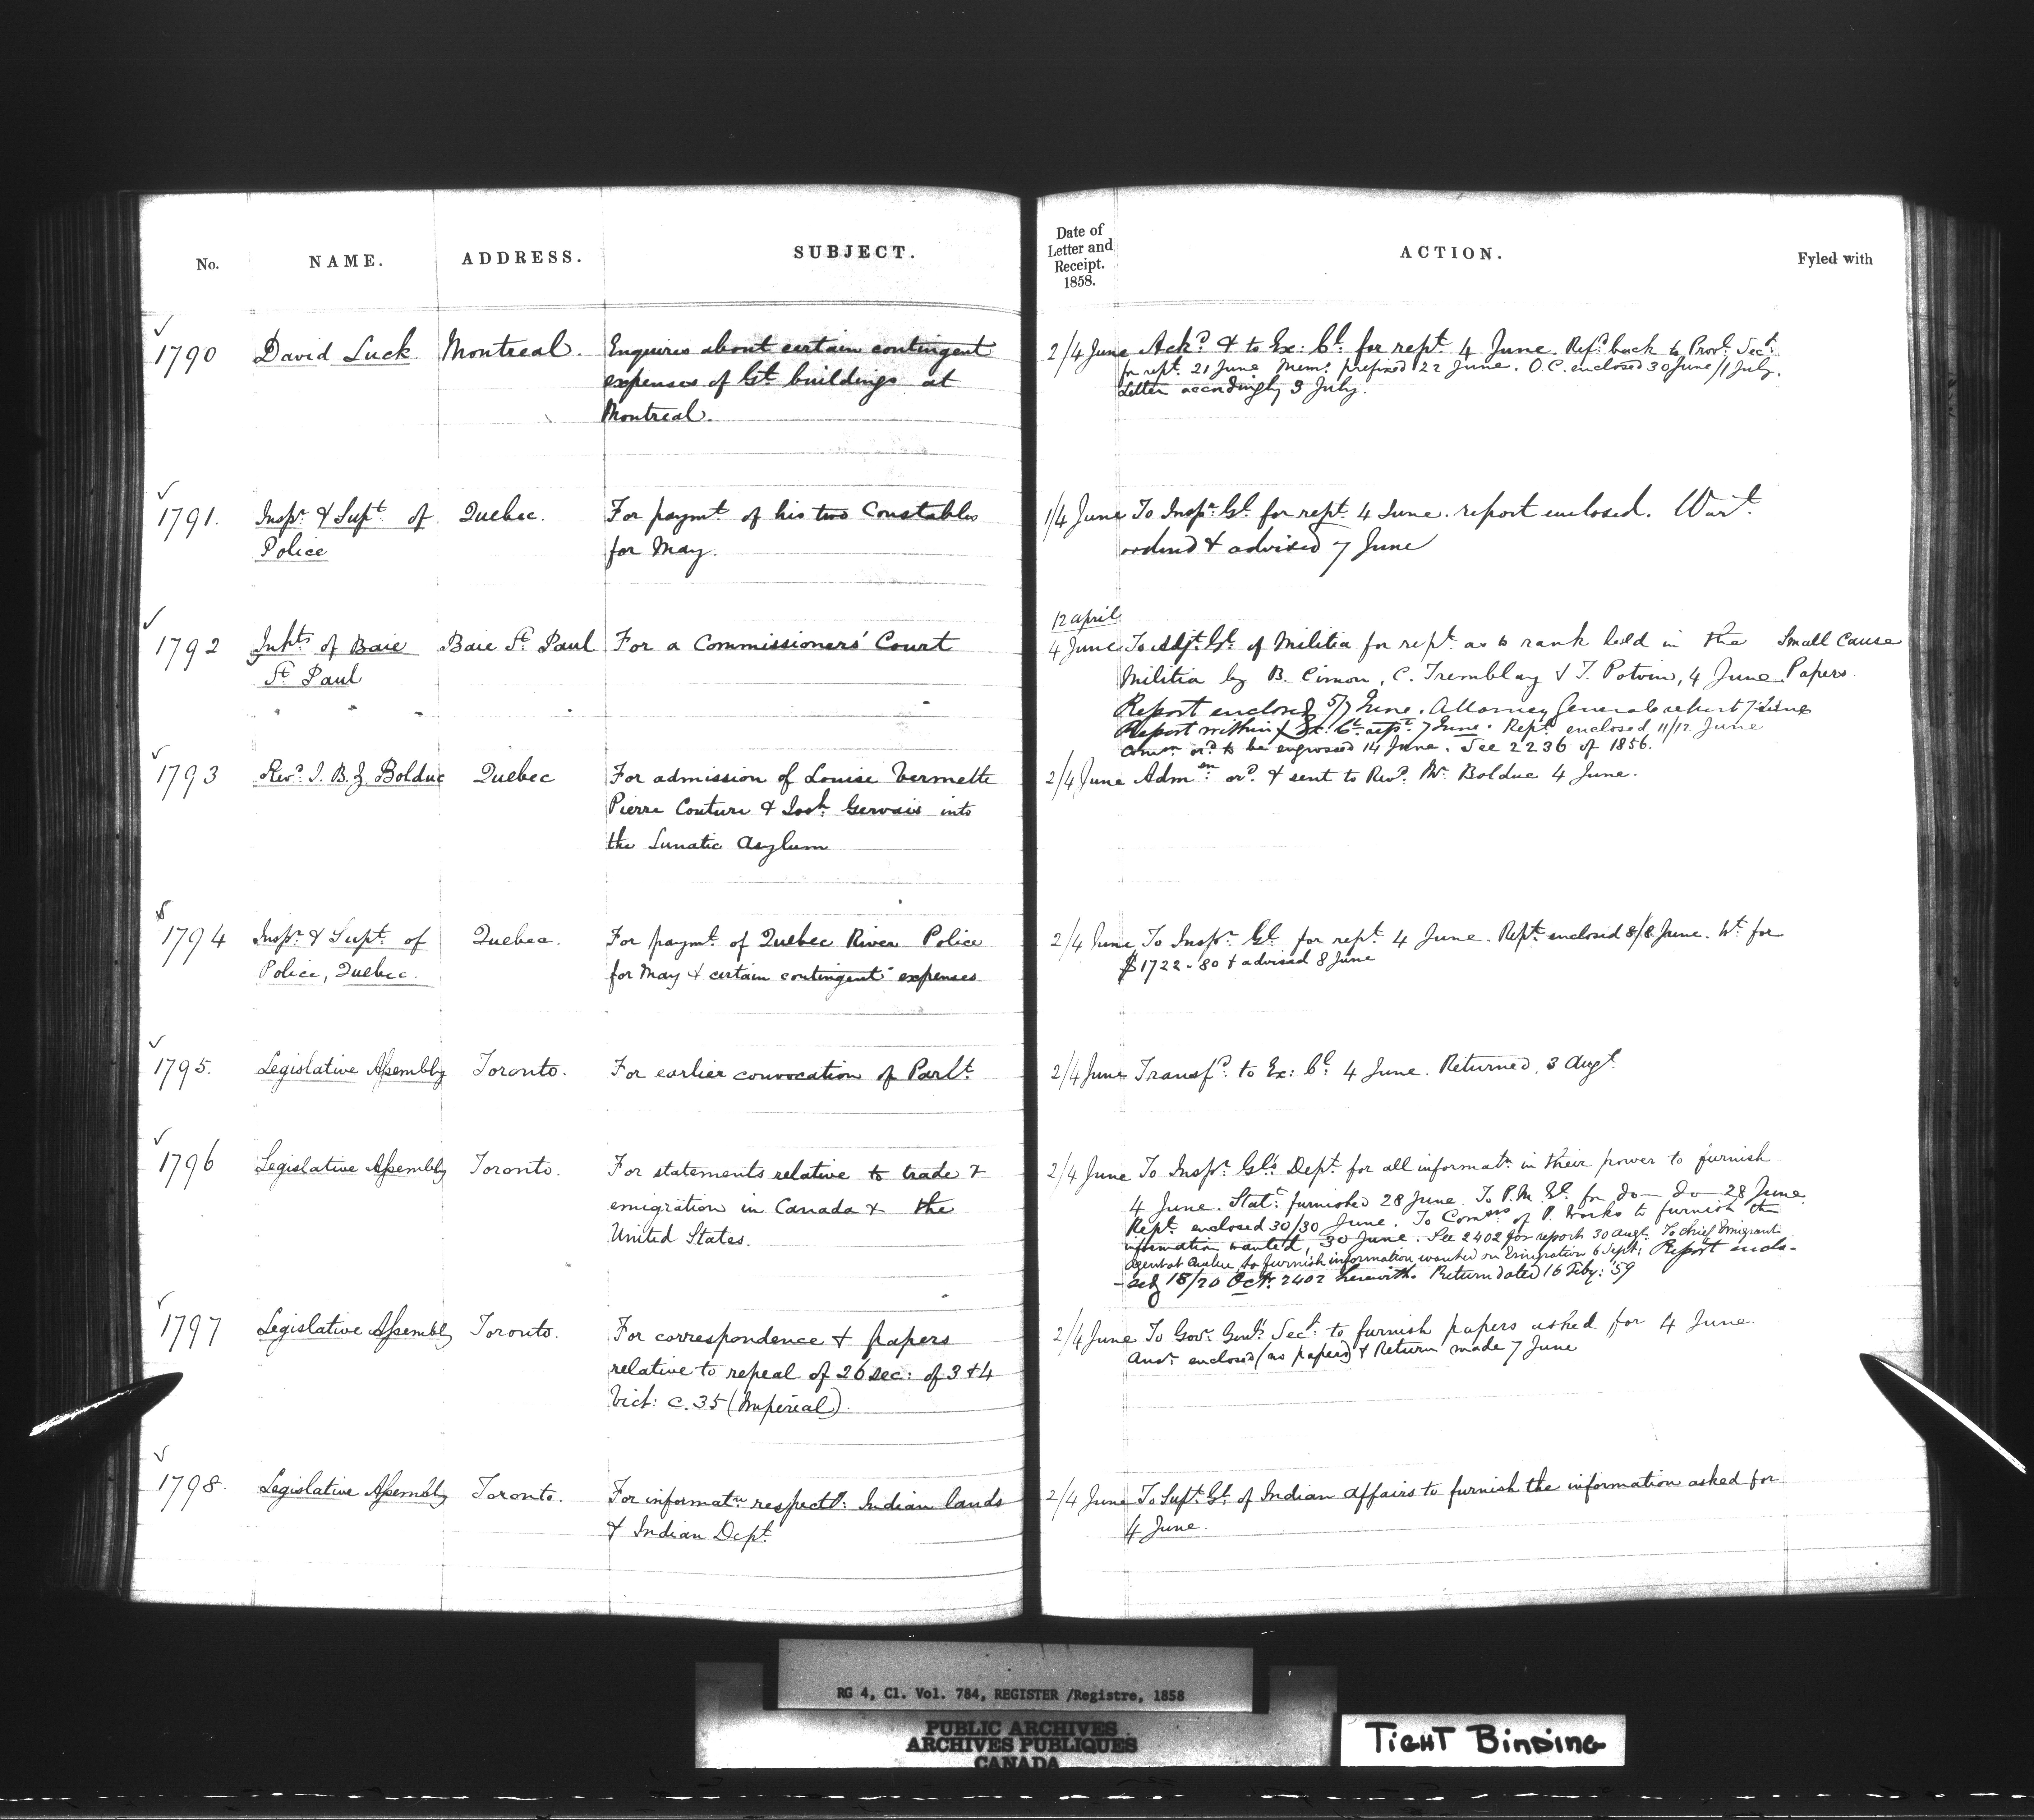 No. NAME. ADDRESS. SUBJECT.
Date of Letter and Receipt. 1858. ACTION. Fyled with
1790 David Luck Montreal. Enquires about certain contingent
expenses of Gt. buildings at
Montreal.
2/4 June Ackd. & to Ex: Cl. for rept. 4 June. Refd. back to Provl. Secy.
for rept. 21 June Mem. prefixed 22 June. O.C. enclosed 30 June/1 July.
Letter accordingly 3 July.
1791. Inspr. & Supt. of Quebec. For paymt. of his two Constables
Police for May.
1/4 June To Inspr. Gl. for rept. 4 June. report enclosed. Wart.
ordered & advised 7 June
1792 Inhts. of Baie Baie St. Paul For a Commissioners' Court
St. Paul
12 april
4 June To Adjt. Gl. of Militia for rept. as to rank held in the Small Cause
Militia by B. Cimon, C. Tremblay & T. Potvin, 4 June. Papers.
Report enclosed 5/7 June. Attorney Generals report 7 June
Report within & Ex. Cl. rept. 7 June. Rept. enclosed 11/12 June
Comn. ord. to be engrossed 14 June. See 2236 of 1856.
1793 Revd. J. B. Z. Bolduc Quebec For admission of Louise Vermette
Pierre Couture & Josh. Gervais into
the Lunatic Asylum
2/4 June Admen. ord. & sent to Revd. Mr. Bolduc 4 June.
1794 Inspr. & Supt. of Quebec. For paymt. of Quebec River Police
Police, Quebec. for May & certain contingent expenses
2/4 June To Inspr. Gl. for rept. 4 June. Rept. enclosed 8/8 June. Wt. for
$1722-80 & advised 8 June
1795. Legislative Assembly Toronto. For earlier convocation of Parlt.
2/4 June Transfd. to Ex: Cl: 4 June. Returned, 3 Augt.
1796 Legislative Assembly Toronto. For statements relative to trade &
emigration in Canada & the
United States.
2/4 June To Inspr. Gl's Dept. for all informatn. in their power to furnish
4 June. Statt. furnished 28 June. To P.M. Gl. for do — do — 28 June.
Rept. enclosed 30/30 June. To Comrs. of P. Works to furnish the
information wanted, 30 June. See 2402 for reports 30 Augt. To chief Emigrant
agent at Quebec, to furnish information wanted on Emigration 6 Sept: Report enclo-
-sed 18/20 Oct. 2402 herewith. Return dated 16 Feby: '59
1797 Legislative Assembly Toronto. For correspondence & papers
relative to repeal of 26 sec: of 3 & 4
Vict: c. 35 (Imperial).
2/4 June To Govr. Genl's Secy. to furnish papers asked for 4 June.
Ansr. enclosed (no papers) & Return made 7 June
1798. Legislative Assembly Toronto. For informatn. respectg: Indian lands
& Indian Dept.
2/4 June To Supt. Gl. of Indian affairs to furnish the information asked for
4 June.
RG 4, C1. Vol. 784, REGISTER /Registre, 1858
PUBLIC ARCHIVES
ARCHIVES PUBLIQUES
CANADA
TIGHT BINDING